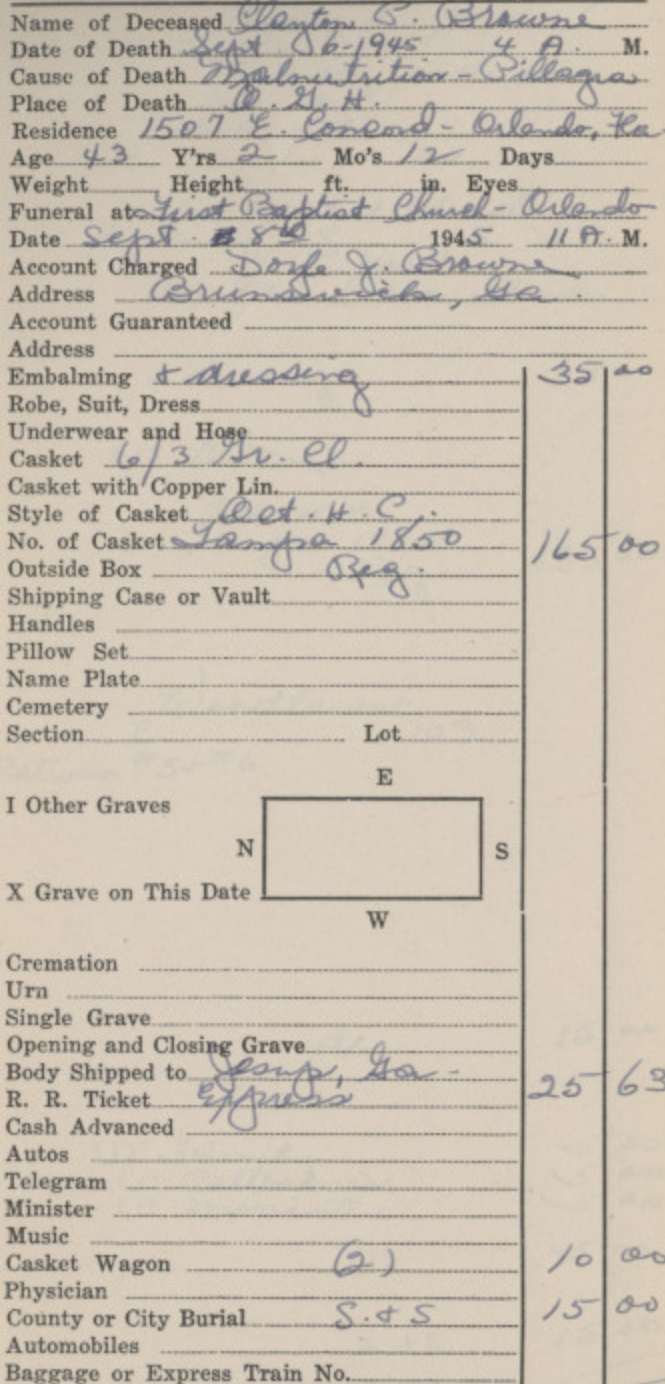 Name of Deceased Clayton P. Browne
Date of Death Sept 6-1945 4 A. M.
Cause of Death Malnutrition - Pillagra
Place of Death O. G. H.
Residence 1507 E. Concord - Orlando, Fla
Age 43 Y'rs 2 Mo's 12 Days
Weight Height ft. in. Eyes
Funeral at First Baptist Church - Orlando
Date Sept 8th 1945 11 A. M.
Account Charged J. Browne
Address Brunswick, Ga.
Account Guaranteed
Address
Embalming & dressing 35 00
Robe, Suit, Dress
Underwear and Hose
Casket 6/3 Gr. Cl.
Casket with Copper Lin.
Style of Casket Oct. H. C.
No. of Casket Tampa 1850 165 00
Outside Box Reg.
Shipping Case or Vault
Handles
Pillow Set
Name Plate
Cemetery
Section Lot
E
I Other Graves
N S
X Grave on This Date
W
Cremation
Urn
Single Grave
Opening and Closing Grave
Body Shipped to Jesup, Ga -
R. R. Ticket Express 25 63
Cash Advanced
Autos
Telegram
Minister
Music
Casket Wagon (2) 10 00
Physician
County or City Burial S. & S 15 00
Automobiles
Baggage or Express Train No.